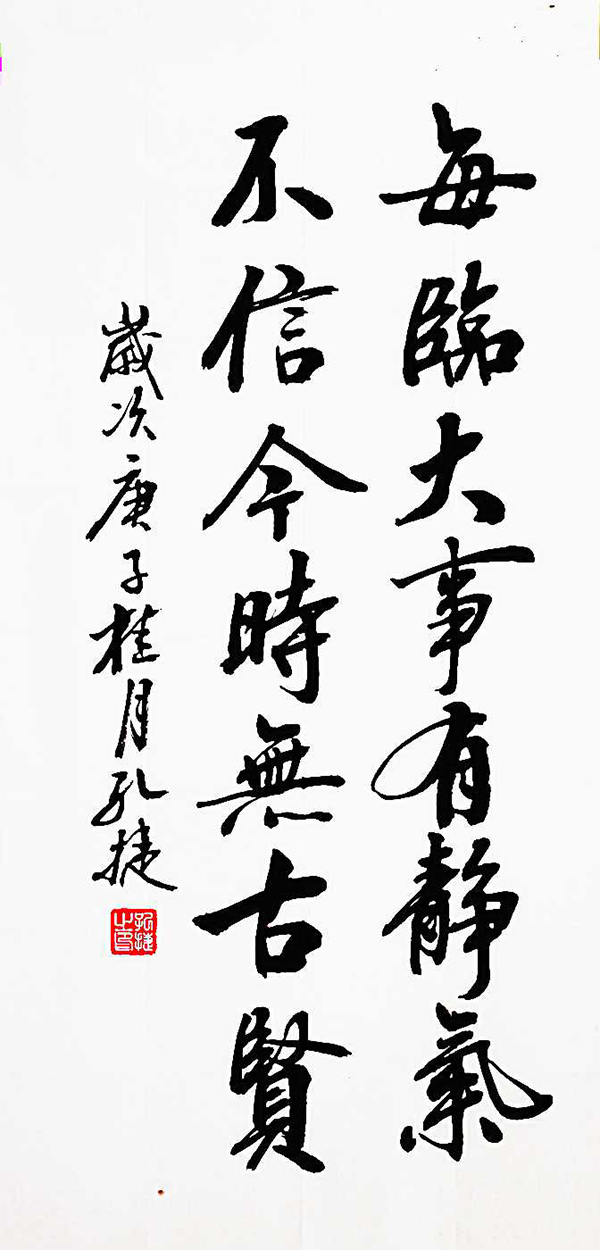 每臨大事有静氣
不信今時無古賢
歲次庚子桂月孔捷
孔捷之印